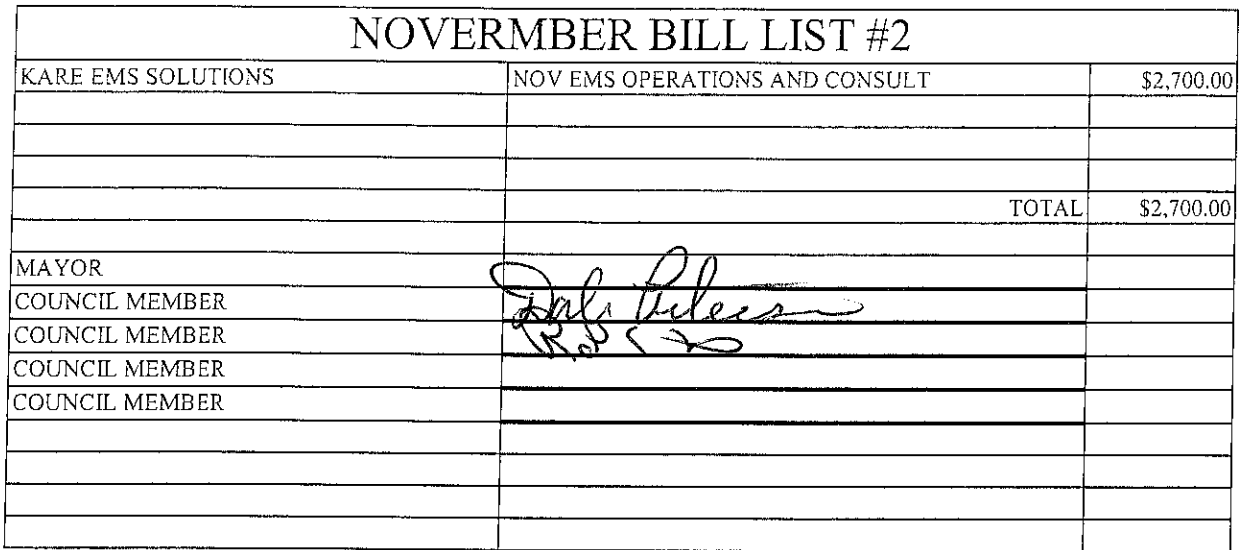 NOVERMBER BILL LIST #2
KARE EMS SOLUTIONS NOV EMS OPERATIONS AND CONSULT $2,700.00
TOTAL $2,700.00
MAYOR
COUNCIL MEMBER
COUNCIL MEMBER
COUNCIL MEMBER
COUNCIL MEMBER